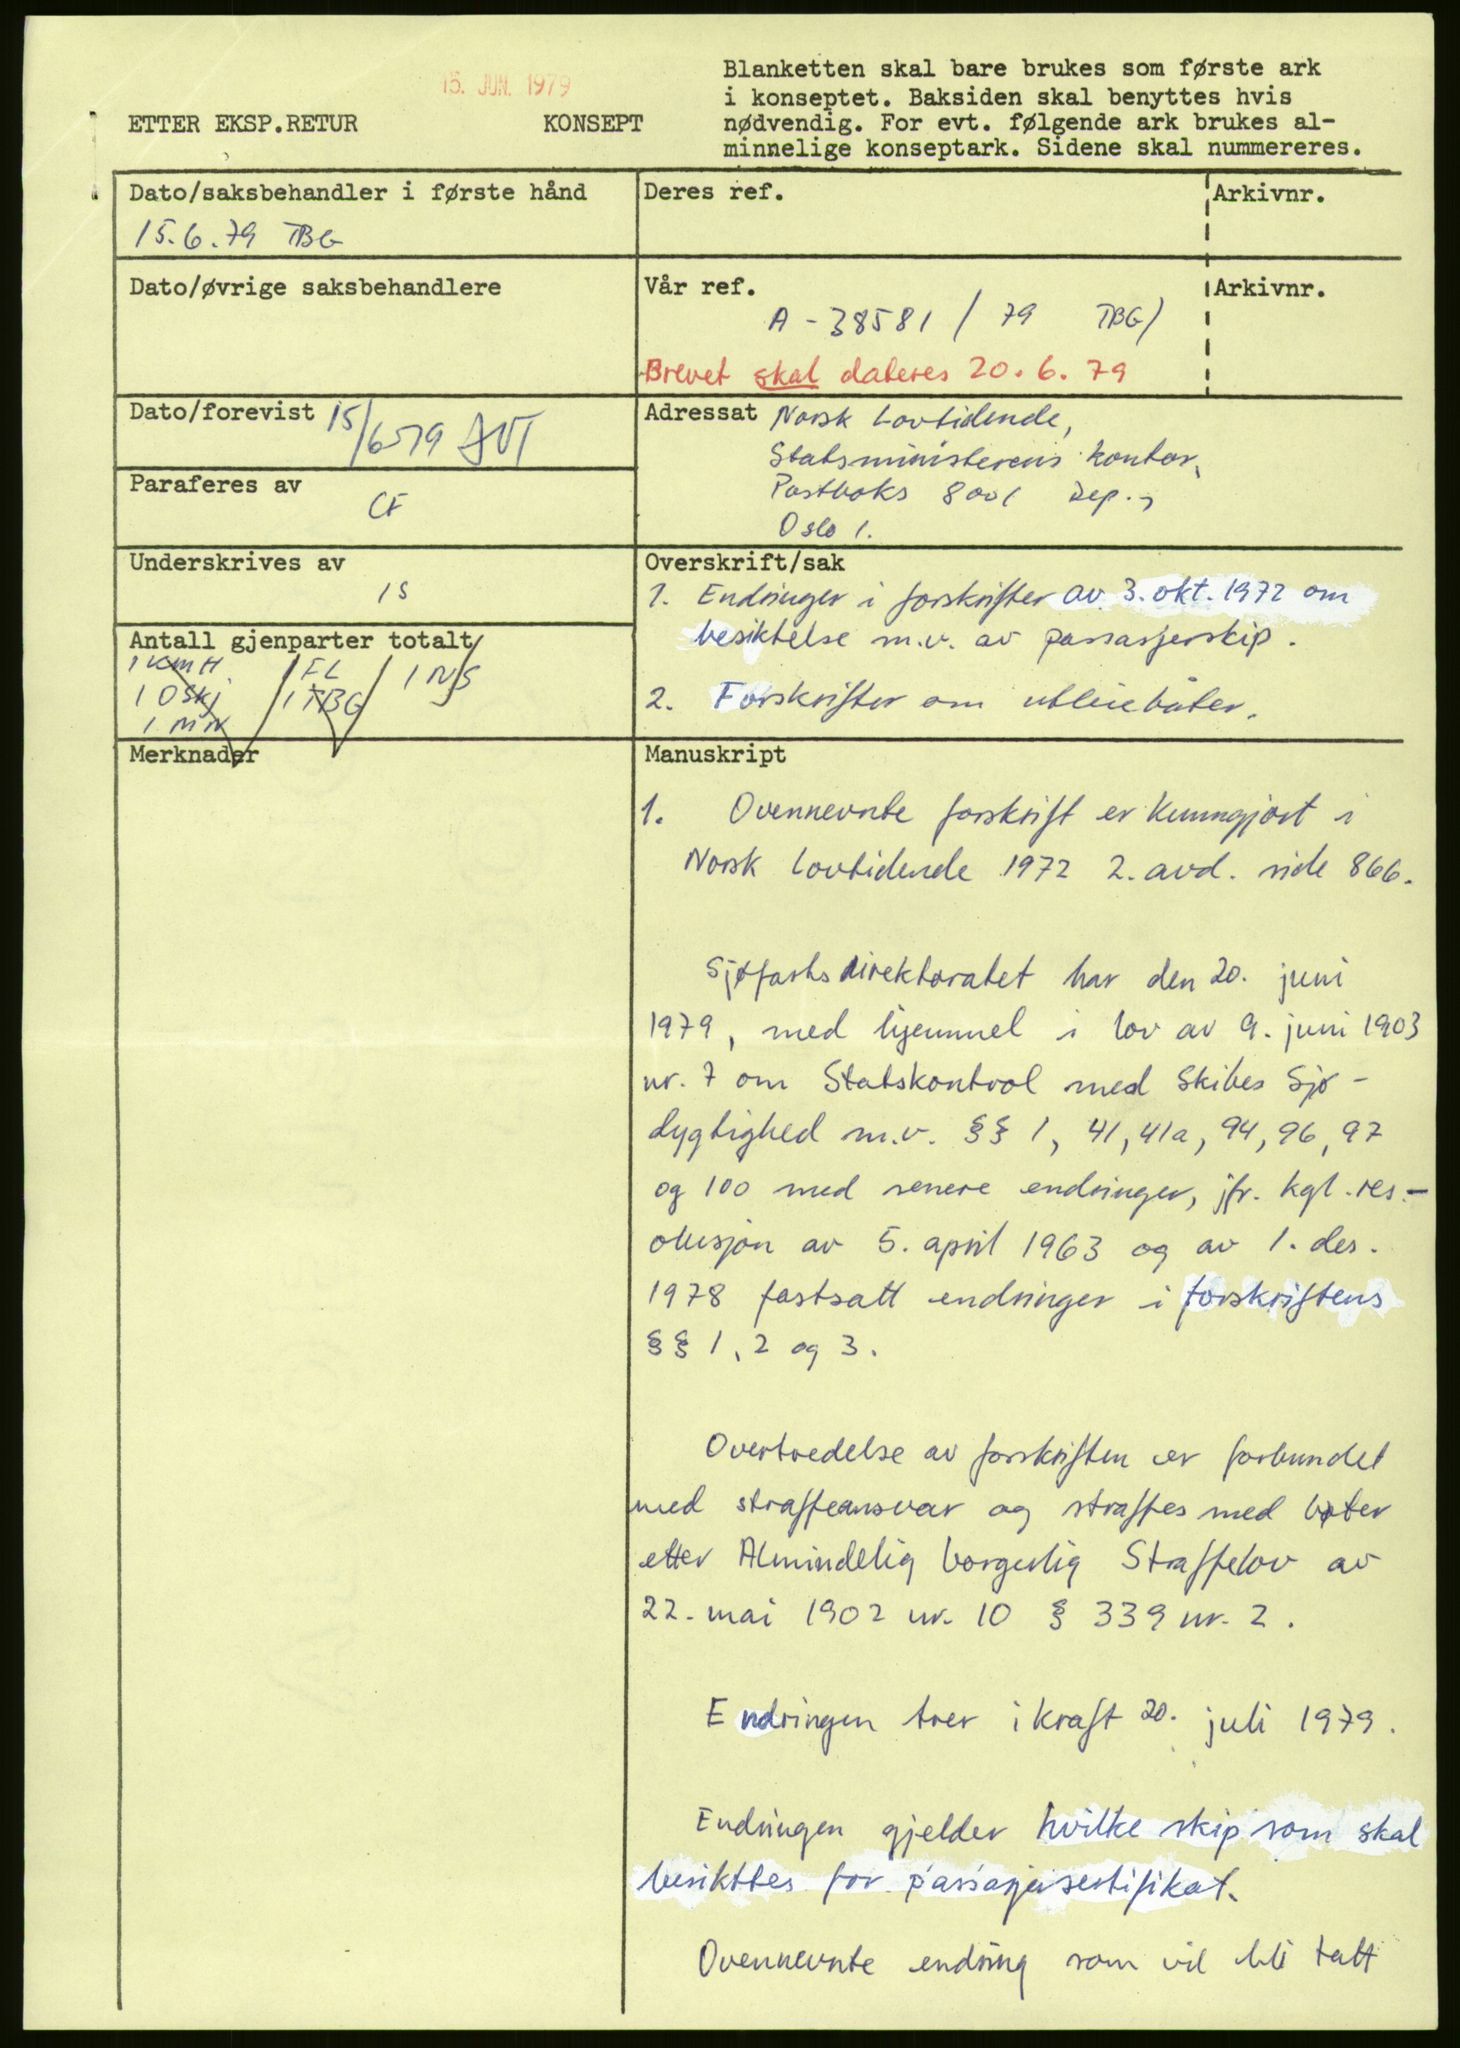 15. JUN. 1979
ETTER EKSP.RETUR
KONSEPT
Blanketten skal bare brukes som første ark
i konseptet. Baksiden skal benyttes hvis
nødvendig. For evt. følgende ark brukes al-
minnelige konseptark. Sidene skal nummereres.
Dato/saksbehandler i første hånd
15.6.79 TBG
Deres ref.
Arkivnr.
Dato/øvrige saksbehandlere
Vår ref.
A - 38581 / 79 TBG/
Brevet skal dateres 20.6.79
Arkivnr.
Dato/forevist 15/6-79
Adressat Norsk Lovtidende,
Statsministerens kontor,
Postboks 8001 Dep.,
Oslo 1.
Paraferes av
CF
Underskrives av
IS
Antall gjenparter totalt
1 KMH 1 FL 1 NS
1 OSkj 1 TBG
1 MN
Overskrift/sak
1. Endringer i forskrifter av 3. okt. 1972 om
besiktelse m.v. av passasjerskip.
2. Forskrifter om utleiebåter.
Merknader
Manuskript
1. Ovennevnte forskrift er kunngjort i
Norsk Lovtidende 1972 2. avd. side 866.
Sjøfartsdirektoratet har den 20. juni
1979, med hjemmel i lov av 9. juni 1903
nr. 7 om Statskontrol med Skibes Sjø-
dygtighed m.v. §§ 1, 41, 41a, 94, 96, 97
og 100 med senere endringer, jfr. kgl. res.-
olusjon av 5. april 1963 og av 1. des.
1978 fastsatt endringer i forskriftens
§§ 1, 2 og 3.
Overtredelse av forskriften er forbundet
med straffeansvar og straffes med bøter
etter Almindelig borgerlig Straffelov av
22. mai 1902 nr. 10 § 339 nr. 2.
Endringen trer i kraft 20. juli 1979.
Endringen gjelder hvilke skip som skal
besiktes for passasjersertifikat.
Ovennevnte endring som vil bli tatt